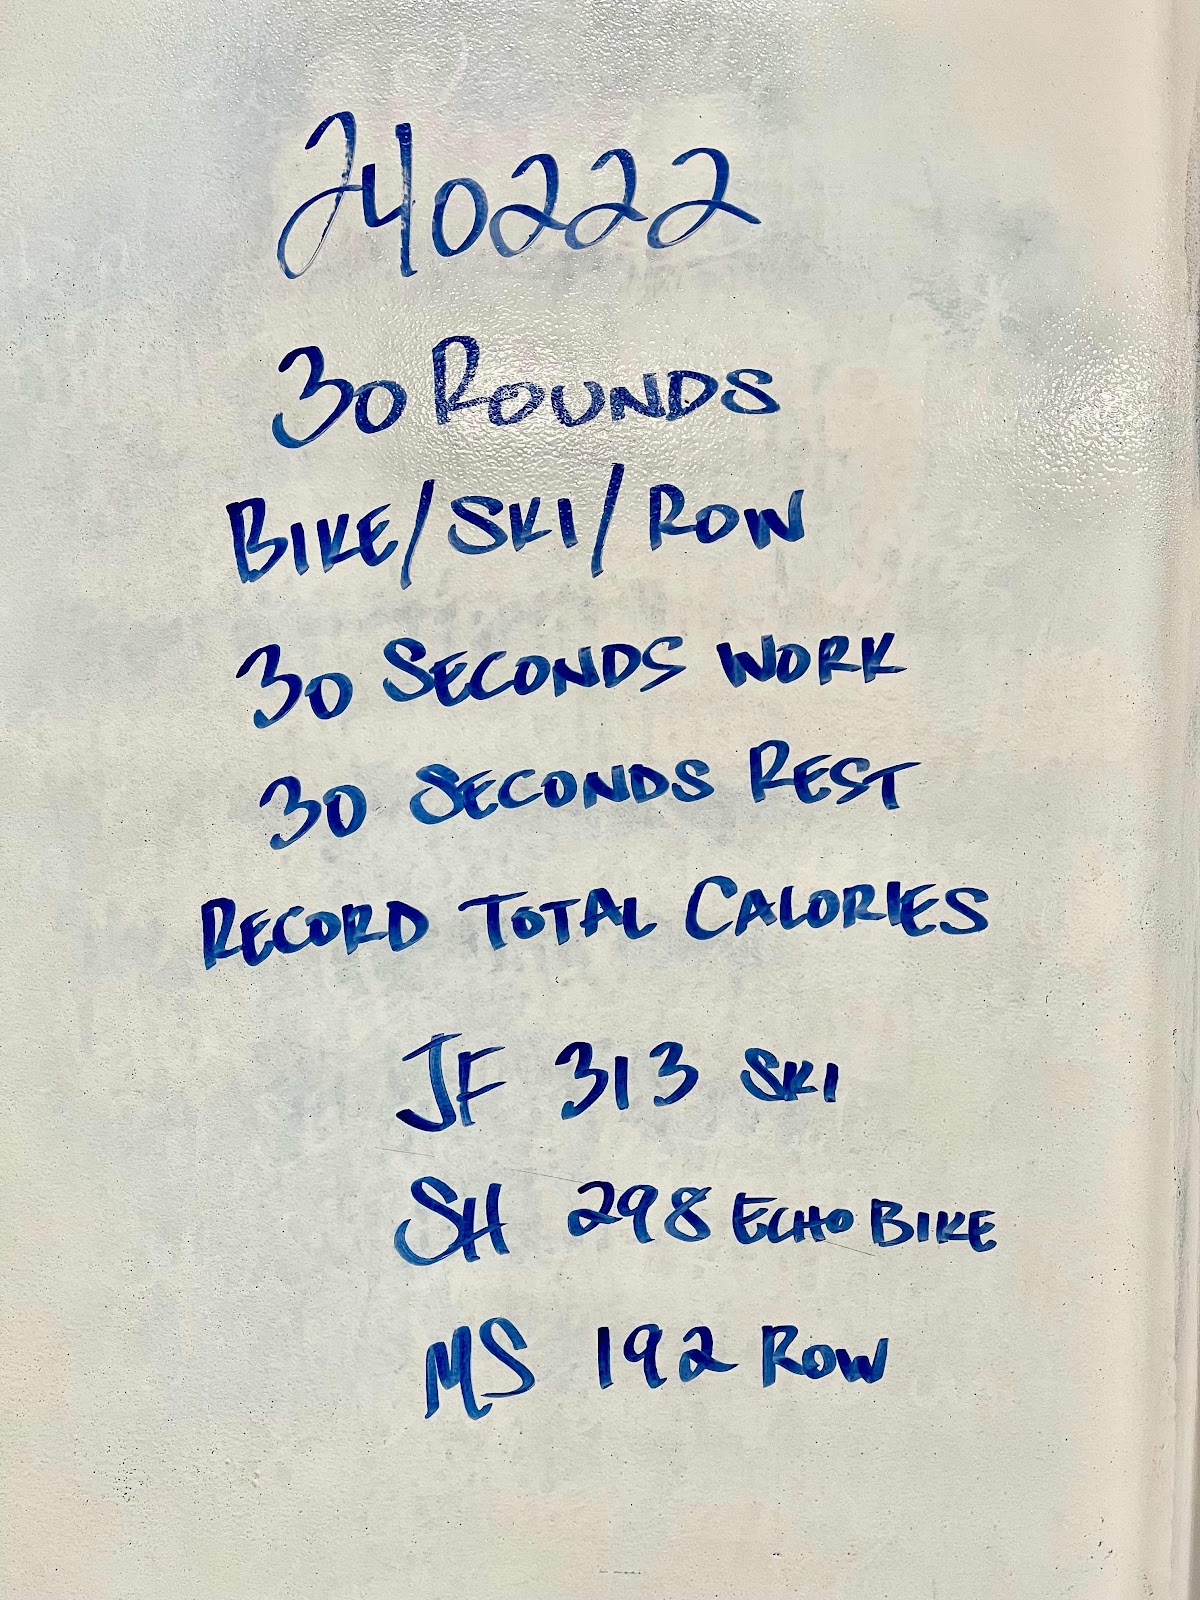 240222
30 ROUNDS
BIKE/SKI/ROW
30 SECONDS WORK
30 SECONDS REST
RECORD TOTAL CALORIES
JF 313 SKI
SH 298 ECHO BIKE
MS 192 ROW